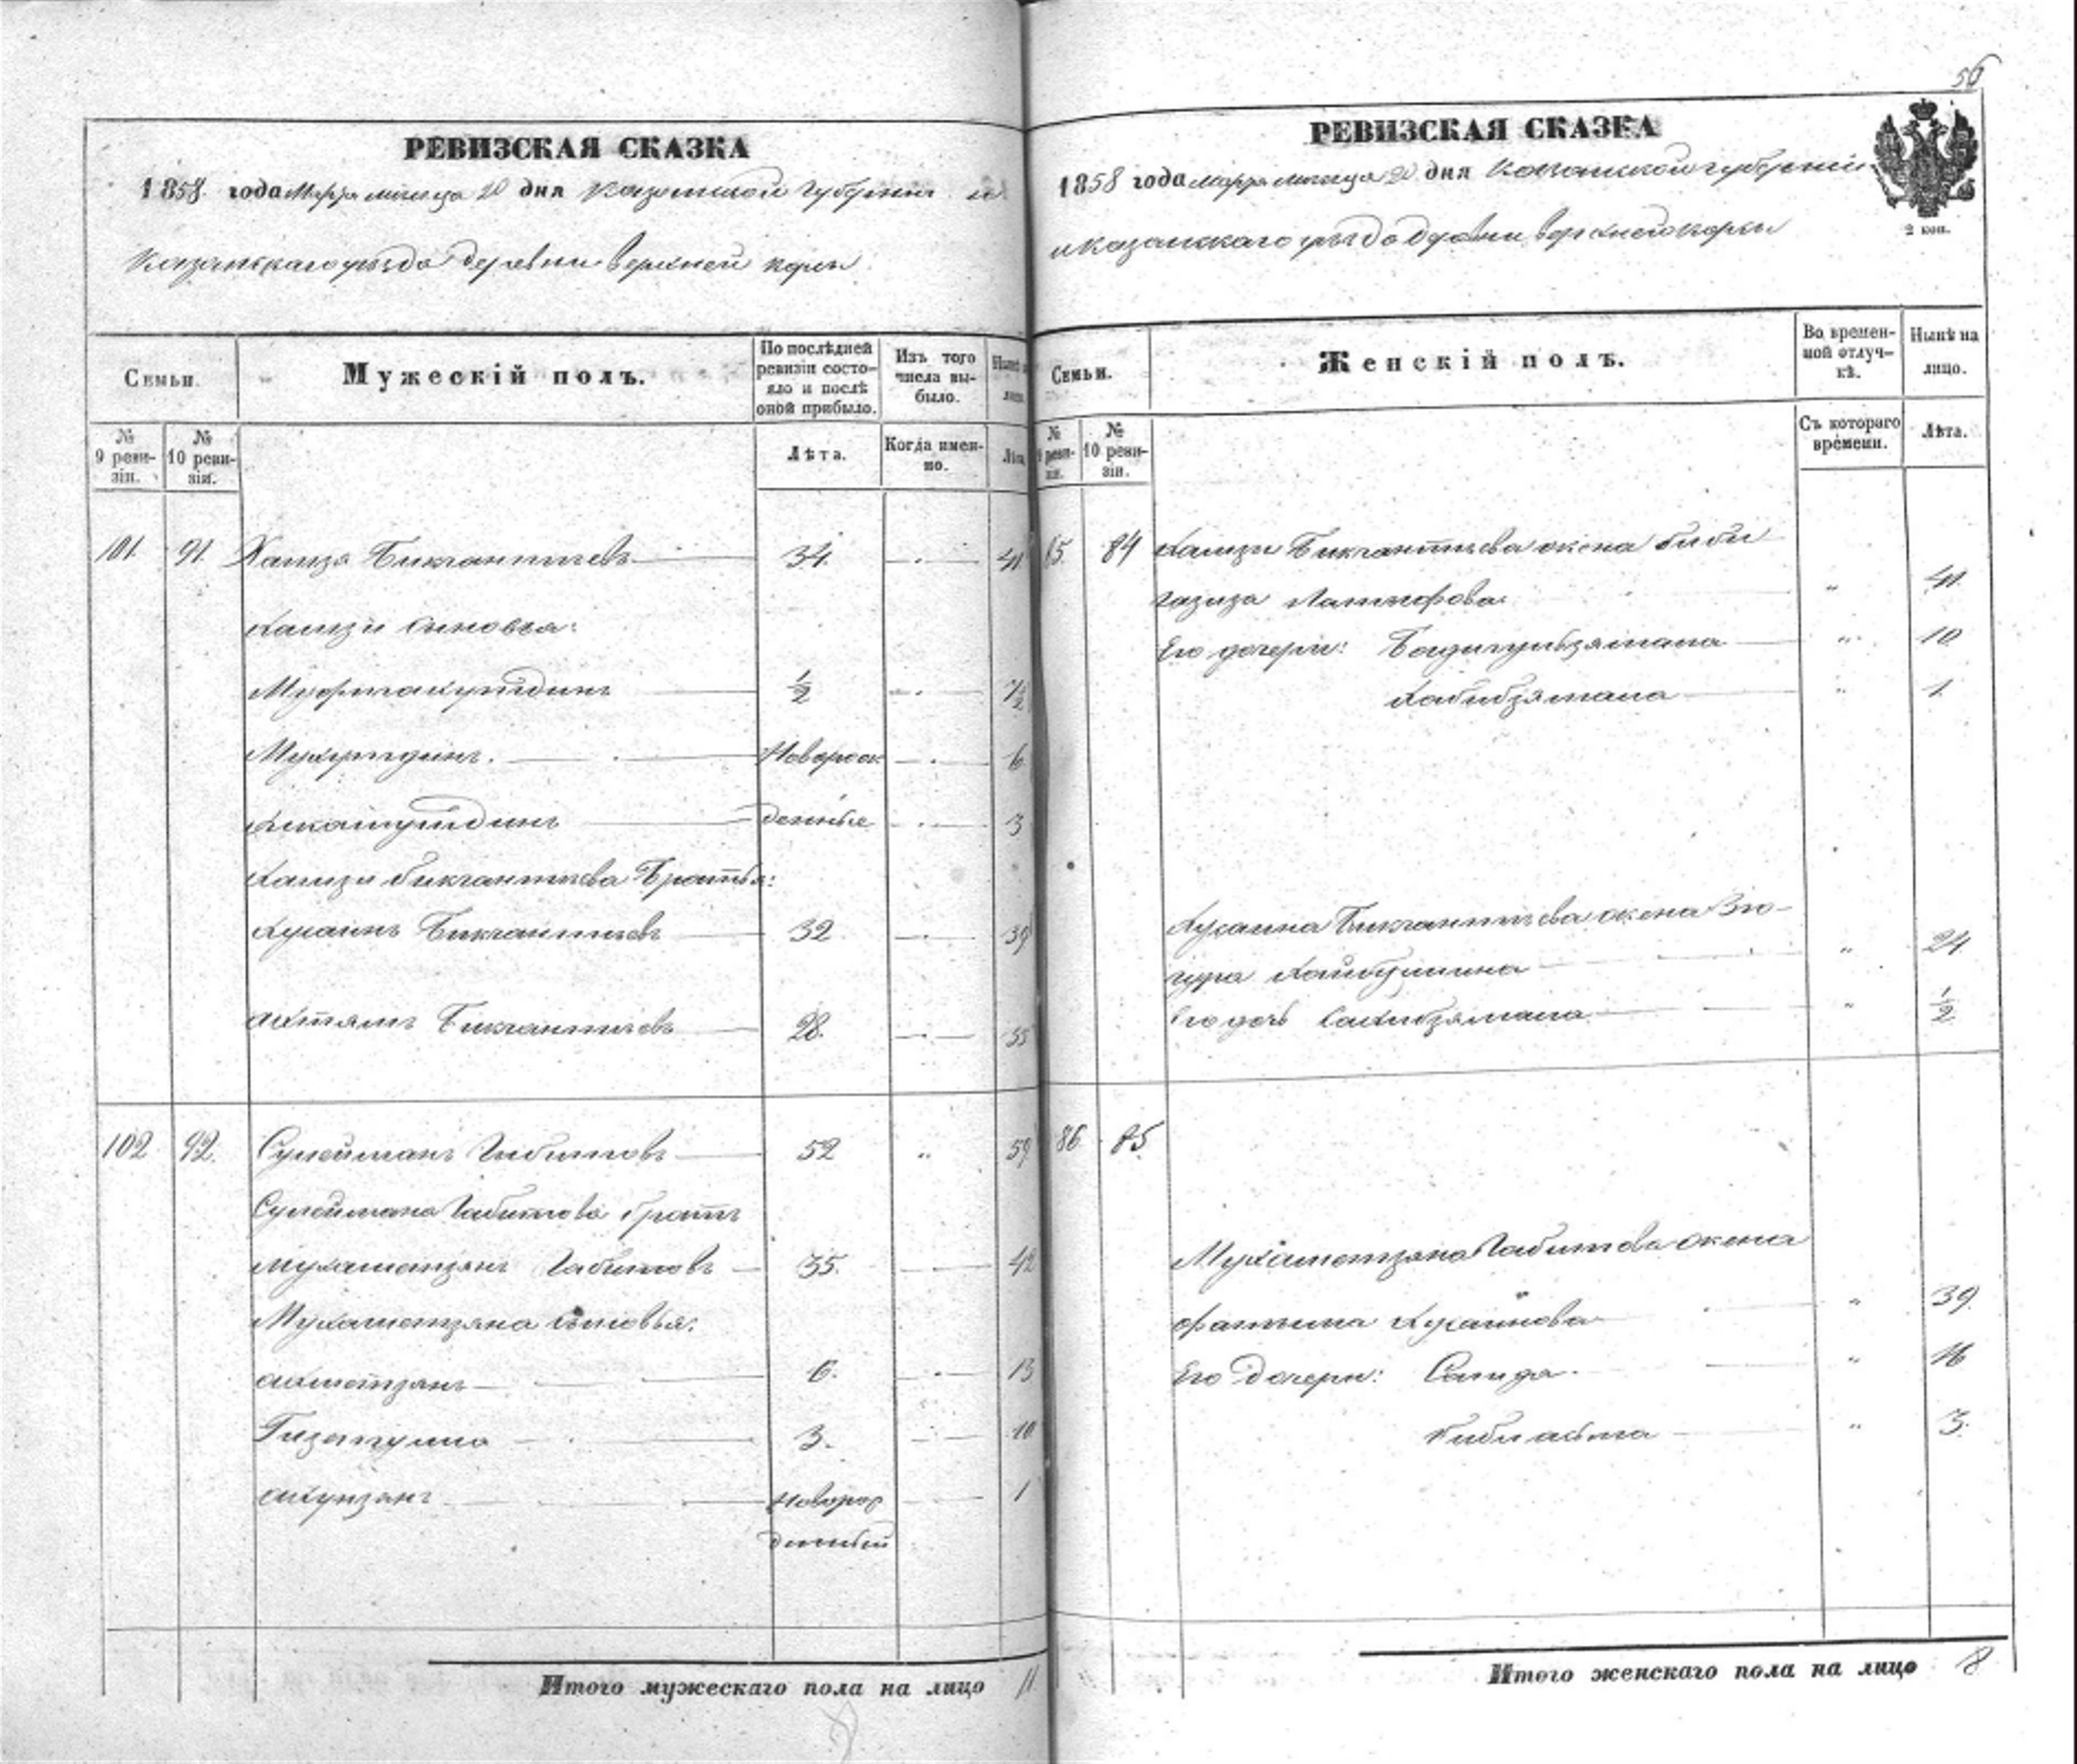 56
РЕВИЗСКАЯ СКАЗКА
1858 года Марта месяца 20 дня Казанской Губернии и
Казанскаго уезда деревни верхней корсы
Семьи.
Мужескій полъ.
По послѣдней ревизіи состояло и послѣ оной прибыло.
Изъ того числа выбыло.
№ 9 ревизіи.
№ 10 ревизіи.
Лѣта.
Когда именно.
Лѣта
101 91 Хамзя Бикчантаевъ 34 41
Хамзи сыновья:
1/2 7 1/2
Новорож 6
денные 3
Хамзи бикчантаева Братья:
Хусаинъ Бикчантаевъ 32 39
Ахтямъ Бикчантаевъ 28. 35
102 92. Сулейманъ Габитовъ 52 „ 59
Сулеймана Габитова братъ
Мухаметзянъ Габитовъ 35. 42
Мухаметзяна сыновья:
Ахметзянъ 6. 13
Гизатулла 3. 10
Ахунзянъ Новорож 1
денный
Итого мужескаго пола на лицо 11
РЕВИЗСКАЯ СКАЗКА
1858 года марта месяца 20 дня Казанской губернии
и казанскаго уезда деревни верхней корсы
2 коп.
Семьи.
Женскій полъ.
Во временной отлучкѣ.
Нынѣ на лицо.
№ 9 ревизіи.
№ 10 ревизіи.
Съ котораго времени.
Лѣта.
85. 84 Хамзи Бикчантаева жена Биби
газиза Латыфова „ 41.
Его дочери: „ 10
Хабибзямала „ 1.
Хусаина Бикчантаева жена Зю-
гура „ 24.
Его дочь Сахибзямала „ 1/2
86 85.
Мухаметзяна Габитова жена
Фатыма Хусаинова „ 39.
Его дочери: Саида. „ 16
Биби „ 3.
Итого женскаго пола на лицо 8